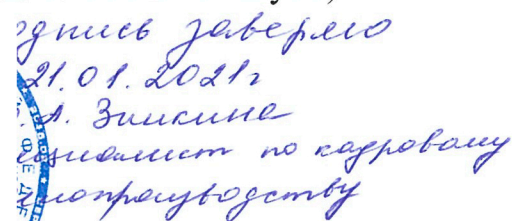 одпись заверяю
21.01.2021г
А. Зимкина
ециалист по кадровому
елопроизводству
ФЕДЕ